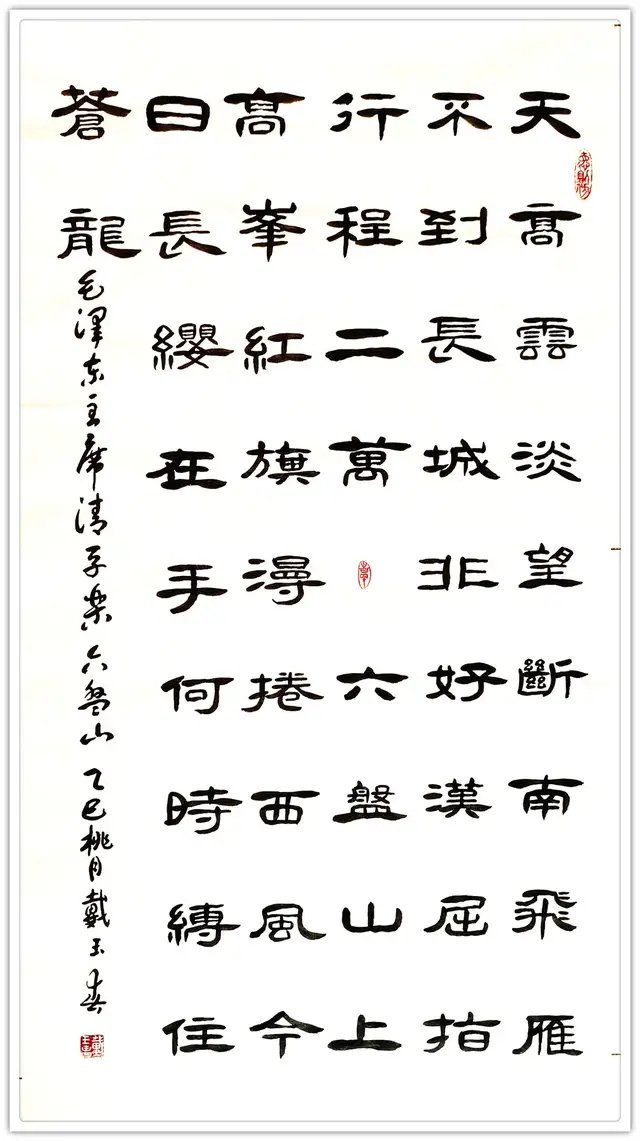 天高雲淡望斷南飛雁
不到長城非好漢屈指
行程二萬 六盤山上
高峯紅旗漫捲西風今
日長纓在手何時縛住
蒼龍
毛澤东主席清平樂六盤山 乙巳桃月戴玉春